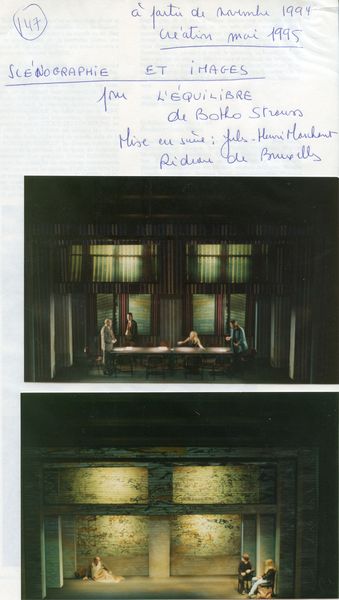 147
à partir de novembre 1994
création mai 1995
SCÉNOGRAPHIE ET IMAGES
pour L'ÉQUILIBRE
de Botho Strauss
Mise en scène : Jules-Henri Marchant
Rideau de Bruxelles